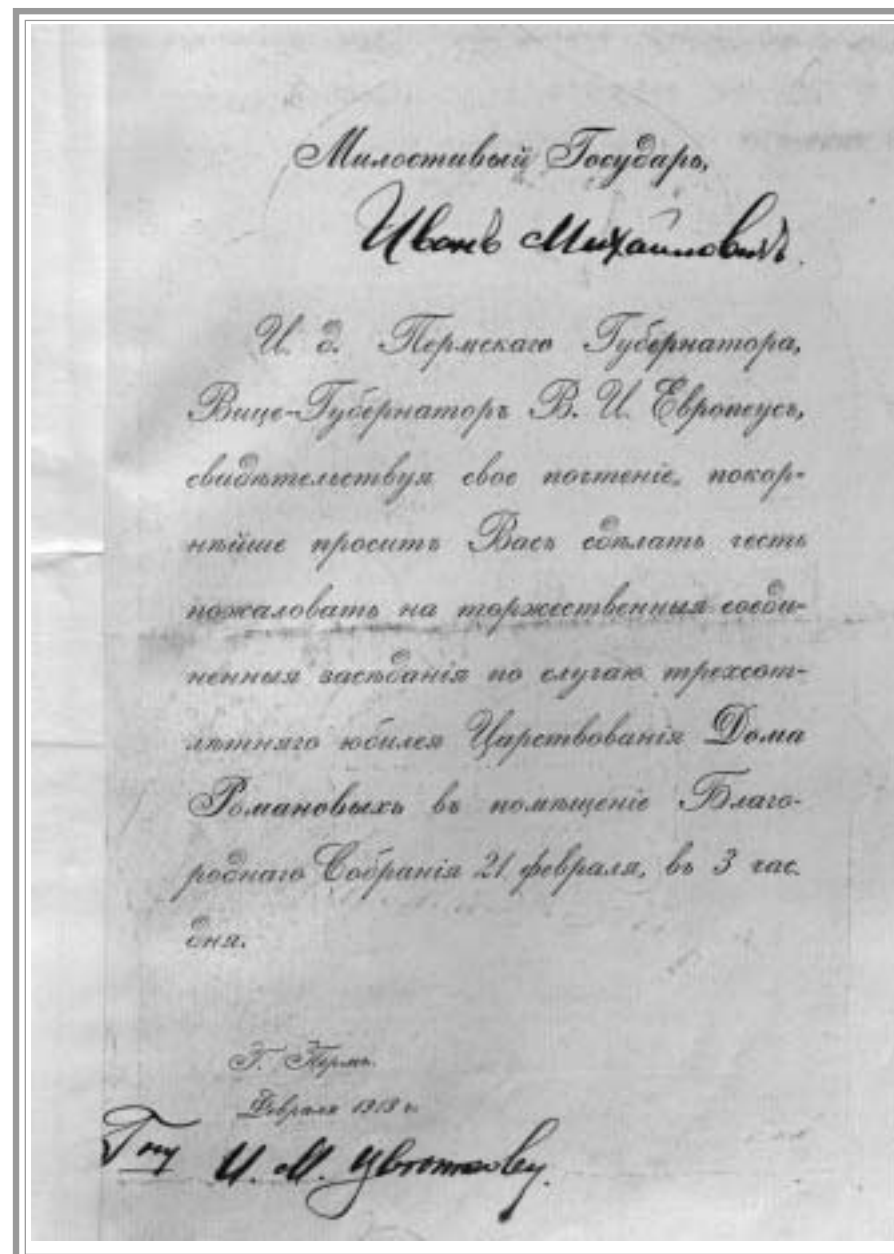 Милостивый Государь,
Иванъ Михайловичъ.
И. д. Пермскаго Губернатора,
Вице-Губернаторъ В. И. Европеусъ,
свидѣтельствуя свое почтеніе, покор-
нѣйше проситъ Васъ сдѣлать честь
пожаловать на торжественныя соеди-
ненныя засѣданія по случаю трехсот-
лѣтняго юбилея Царствованія Дома
Романовыхъ въ помѣщеніе Благо-
роднаго Собранія 21 февраля, въ 3 час.
дня.
Г. Пермь.
Февраля 1913 г.
Г-ну И. М. Цвѣткову.